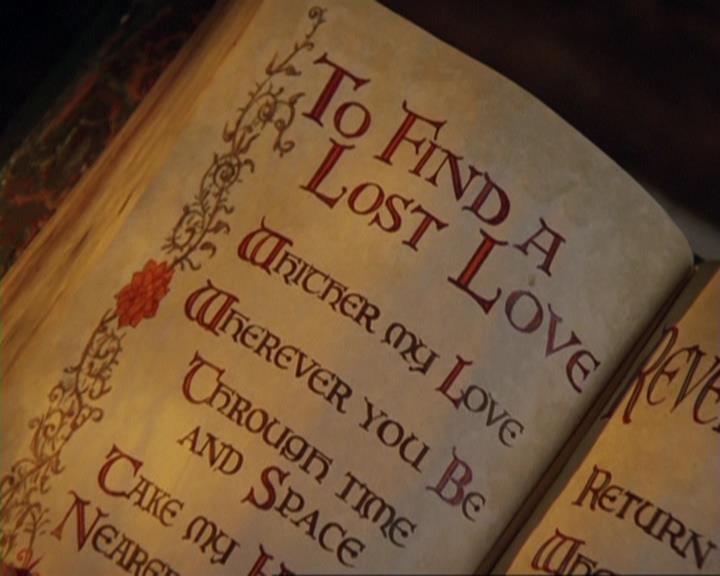 To Find A
Lost Love
Whither my Love
Wherever you Be
Through time
and Space
Take my
Nearer
Return